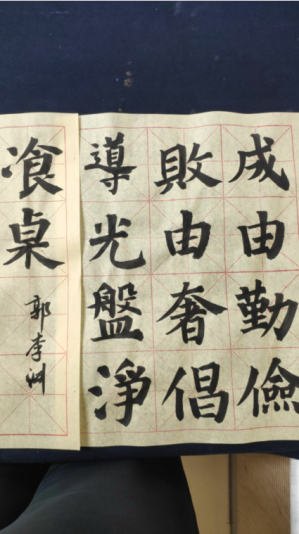 成由勤儉
敗由奢倡
導光盤淨
飡桌
郭李